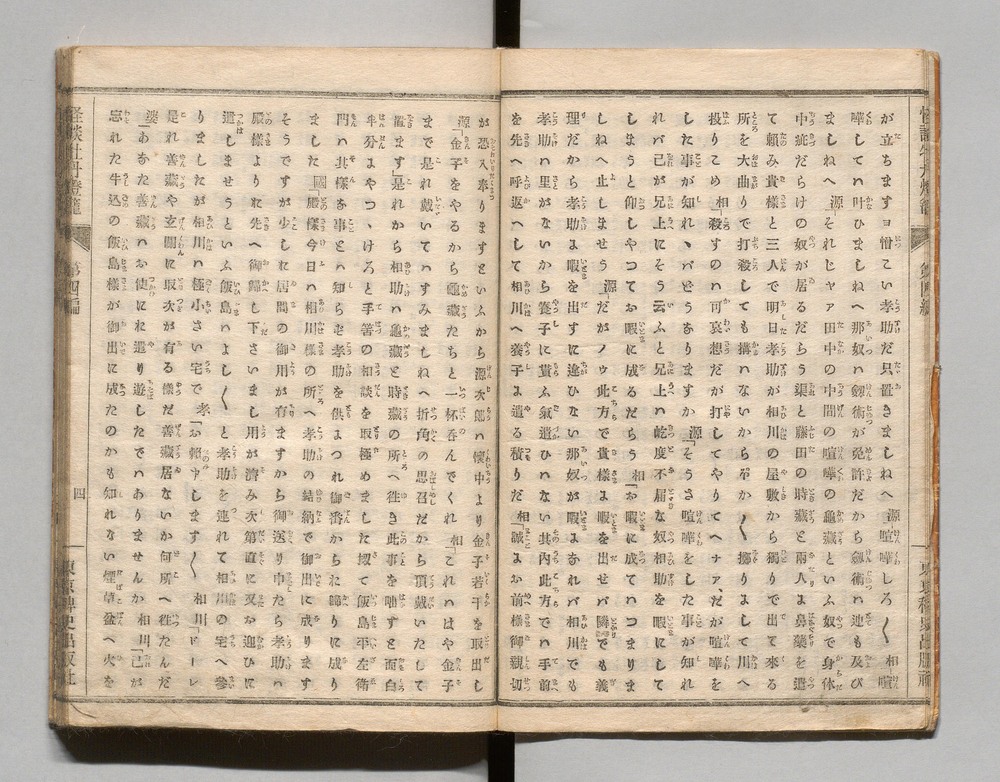 が立ちますヨ憎こい孝助だ只置きましねへ 源「喧嘩しろ〱 相「喧
嘩してハ叶ひましねへ那奴ハ劔術が免許だから劔術ハ迚も及び
ましねへ 源「それじやア田中の中間の喧嘩の龜藏といふ奴で身体
中疵だらけの奴が居るだらう渠と藤田の時藏と兩人に鼻薬を遣
て頼み貴様と三人で明日孝助が相川の屋敷から獨りで出て來る
所を大曲りで打殺しても搆ハないからぶか〱擲りよして川へ
投りこめ 相「殺すのハ可哀想だが打してやりてへナァ、だが喧嘩を
した事が知れゝバどうありますか 源「そうさ喧嘩をした事が知れ
れバ己が兄上にそう云ふと兄上ハ乾度不届な奴相助を暇にして
しまうと仰しやつてお暇に成るだらう 相「お暇に成てハつまりま
しねへ止しませう 源「だがノウ此方で貴様に暇を出せバ隣でも義
理だから孝助に暇を出すに違ひない那奴が暇にあれバ相川でも
孝助ハ里がないから養子に貰ふ氣遣ひハない其内此方でハ手前
を先へ呼返へして相川へ養子に遣る積りだ 相「誠にお前様御親切
が恐入奉りますといふから源次郎ハ懷中より金子若干を取出し
源「金子をやるから龜藏たちと一杯呑んでくれ 相「これハはや金子
まで是れ戴いてハすみましねへ折角の思召だから頂戴いたして
置ます」是れから相助ハ龜藏と時藏の所へ徃き此事を咄すと面白
半分にやつゝけろと手筈の相談を取極めました扨て飯島平左衛
門ハ其様な事とハ知らず孝助を供につれ御番からお歸りに成り
ました 國「殿様今日ハ相川様の所へ孝助の結納で御出に成ります
そうですが少しお居間の御用が有ますから御送り申たら孝助ハ
殿様よりお先へ御歸し下さいまし用が濟み次第直に又お迎ひに
遣しませうといふ飯島ハよし〱と孝助を連れて相川の宅へ參
りましたが相川ハ極小さい宅で 孝「お頼申します〱 相川「ドーレ
是れ善藏や玄關に取次が有る様だ善藏居ないか何所へ徃たんだ
婆「あなた善藏ハお使にお遣り遊したでハありませんか 相川「己が
忘れた牛込の飯島様が御出に成たのかも知れない煙草盆へ火を
怪談牡丹燈籠 第四編
四
東京稗史出版社